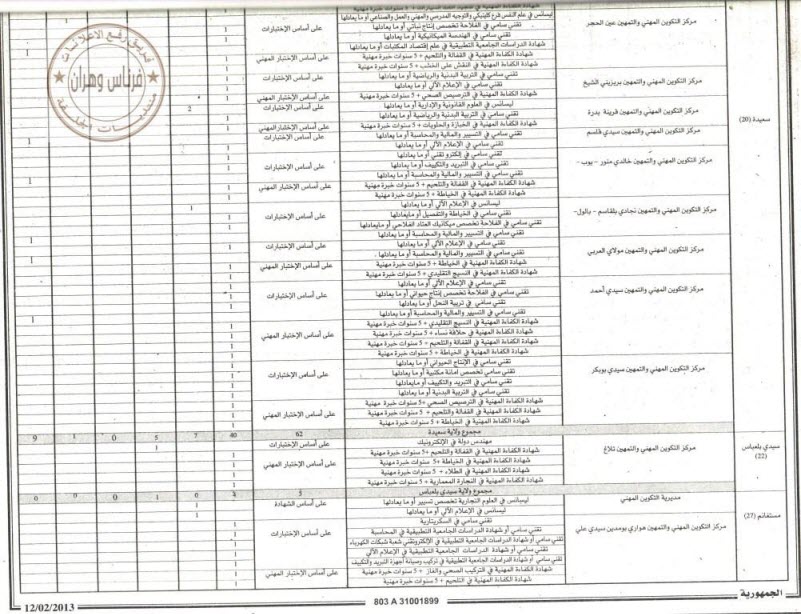 ليسانس في علم النفس فرع كلينيكي والتوجيه المدرسي والمهني والعمل والصناعي أو ما يعادلها
مركز التكوين المهني والتمهين عين الحجر
تقني سامي في الفلاحة تخصص إنتاج نباتي أو ما يعادلها
على أساس الإختبارات
تقني سامي في الهندسة الميكانيكية أو ما يعادلها
شهادة الدراسات الجامعية التطبيقية في علم إقتصاد المكتبات أو ما يعادلها
شهادة الكفاءة المهنية في القفالة والتلحيم + 5 سنوات خبرة مهنية
على أساس الإختبار المهني
شهادة الكفاءة المهنية في النقش على الخشب + 5 سنوات خبرة مهنية
فريق رفع الاعلانات
فرناس وهران
منتديات الجلفة
مركز التكوين المهني والتمهين بريزيني الشيخ
تقني سامي في التربية البدنية والرياضية أو ما يعادلها
على أساس الإختبارات
تقني سامي في الإعلام الآلي أو ما يعادلها
شهادة الكفاءة المهنية في الترصيص الصحي + 5 سنوات خبرة مهنية
على أساس الإختبار المهني
سعيدة (20)
مركز التكوين المهني والتمهين قرينة بدرة
ليسانس في العلوم القانونية والإدارية أو ما يعادلها
على أساس الإختبارات
2
تقني سامي في التربية البدنية والرياضية أو ما يعادلها
شهادة الكفاءة المهنية في الخبازة والحلويات + 5 سنوات خبرة مهنية
على أساس الإختبار المهني
مركز التكوين المهني والتمهين سيدي قاسم
تقني سامي في التسيير والمالية والمحاسبة أو ما يعادلها
على أساس الإختبارات
مركز التكوين المهني والتمهين خالدي منور - يوب -
تقني سامي في الإعلام الآلي أو ما يعادلها
تقني سامي في إلكترو تقني أو ما يعادلها
تقني سامي في التبريد والتكييف أو ما يعادلها
على أساس الإختبارات
تقني سامي في التسيير والمالية والمحاسبة أو ما يعادلها
شهادة الكفاءة المهنية في القفالة والتلحيم + 5 سنوات خبرة مهنية
على أساس الإختبار المهني
شهادة الكفاءة المهنية في الخياطة + 5 سنوات خبرة مهنية
مركز التكوين المهني والتمهين نجادي بلقاسم - بالول-
ليسانس في الإعلام الآلي أو ما يعادلها
تقني سامي في الخياطة والتفصيل أو ما يعادلها
على أساس الإختبارات
تقني سامي في الفلاحة تخصص ميكانيك العتاد الفلاحي أو ما يعادلها
تقني سامي في التسيير والمالية والمحاسبة أو ما يعادلها
مركز التكوين المهني والتمهين مولاي العربي
تقني سامي في الإعلام الآلي أو ما يعادلها
على أساس الإختبارات
تقني سامي في التسيير والمالية والمحاسبة أو ما يعادلها
شهادة الكفاءة المهنية في الخياطة + 5 سنوات خبرة مهنية
على أساس الإختبار المهني
شهادة الكفاءة المهنية في النسيج التقليدي + 5 سنوات خبرة مهنية
مركز التكوين المهني والتمهين سيدي أحمد
تقني سامي في الإعلام الآلي أو ما يعادلها
تقني سامي في الفلاحة تخصص إنتاج حيواني أو ما يعادلها
على أساس الإختبارات
تقني سامي في تربية النحل أو ما يعادلها
تقني سامي في التسيير والمالية والمحاسبة أو ما يعادلها
شهادة الكفاءة المهنية في النسيج التقليدي + 5 سنوات خبرة مهنية
شهادة الكفاءة المهنية في حلاقة نساء + 5 سنوات خبرة مهنية
على أساس الإختبار المهني
شهادة الكفاءة المهنية في القفالة والتلحيم + 5 سنوات خبرة مهنية
شهادة الكفاءة المهنية في الخياطة + 5 سنوات خبرة مهنية
مركز التكوين المهني والتمهين سيدي بوبكر
تقني سامي في الإنتاج الحيواني أو ما يعادلها
تقني سامي تخصص أمانة مكتبية أو ما يعادلها
على أساس الإختبارات
تقني سامي في التبريد والتكييف أو ما يعادلها
تقني سامي في التربية البدنية أو ما يعادلها
شهادة الكفاءة المهنية في الترصيص الصحي + 5 سنوات خبرة مهنية
شهادة الكفاءة المهنية في القفالة والتلحيم + 5 سنوات خبرة مهنية
على أساس الإختبار المهني
شهادة الكفاءة المهنية في الخياطة + 5 سنوات خبرة مهنية
مجموع ولاية سعيدة 62 40 7 5 0 1 9
سيدي بلعباس (22)
مركز التكوين المهني والتمهين تلاغ
مهندس دولة في الإلكترونيك
على أساس الإختبارات
شهادة الكفاءة المهنية في القفالة والتلحيم + 5 سنوات خبرة مهنية
شهادة الكفاءة المهنية في الخياطة + 5 سنوات خبرة مهنية
على أساس الإختبار المهني
شهادة الكفاءة المهنية في الطلاء + 5 سنوات خبرة مهنية
شهادة الكفاءة المهنية في النجارة المعمارية + 5 سنوات خبرة مهنية
مجموع ولاية سيدي بلعباس 5 4 0 1 0 0 0
مستغانم (27)
مديرية التكوين المهني
ليسانس في العلوم التجارية تخصص تسيير أو ما يعادلها
على أساس الشهادة
مركز التكوين المهني والتمهين هواري بومدين سيدي علي
ليسانس في الإعلام الآلي أو ما يعادلها
تقني سامي في السكريتارية
تقني سامي أو شهادة الدراسات الجامعية التطبيقية في المحاسبة
على أساس الإختبارات
تقني سامي أو شهادة الدراسات الجامعية التطبيقية في الإلكتروتقني شعبة شبكات الكهرباء
تقني سامي أو شهادة الدراسات الجامعية التطبيقية في الإعلام الآلي
تقني سامي أو شهادة الدراسات الجامعية التطبيقية في تركيب وصيانة أجهزة التبريد والتكييف
شهادة الكفاءة المهنية في التركيب الصحي والغاز + 5 سنوات خبرة مهنية
على أساس الإختبار المهني
شهادة الكفاءة المهنية في التلحيم + 5 سنوات خبرة مهنية
الجمهورية
803 A 31001899
12/02/2013